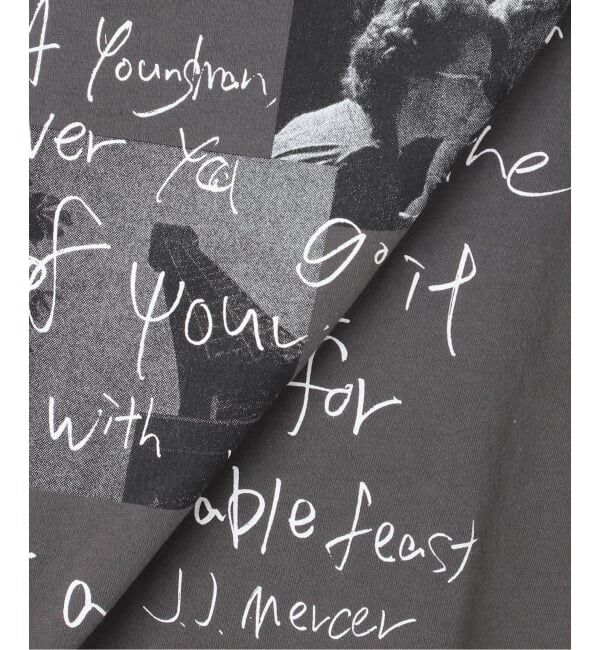 Youngman,
ver you
he
of your go it
with for
able feast
a J.J. Mercer